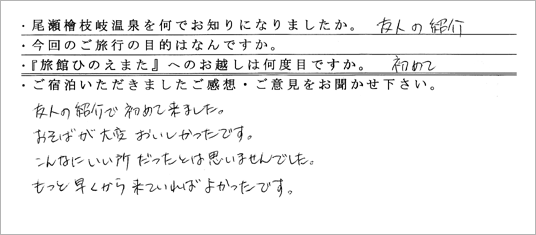 ・尾瀬檜枝岐温泉を何でお知りになりましたか。 友人の紹介
・今回のご旅行の目的はなんですか。
・『旅館ひのえまた』へのお越しは何度目ですか。 初めて
・ご宿泊いただきましたご感想・ご意見をお聞かせ下さい。
友人の紹介で初めて来ました。
おそばが大変おいしかったです。
こんなにいい所だったとは思いませんでした。
もっと早くから来ていればよかったです。